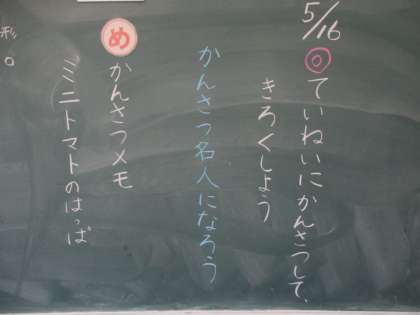 5/16
◎ていねいにかんさつして、
きろくしよう
かんさつ名人になろう
め
かんさつメモ
ミニトマトのはっぱ
形
。